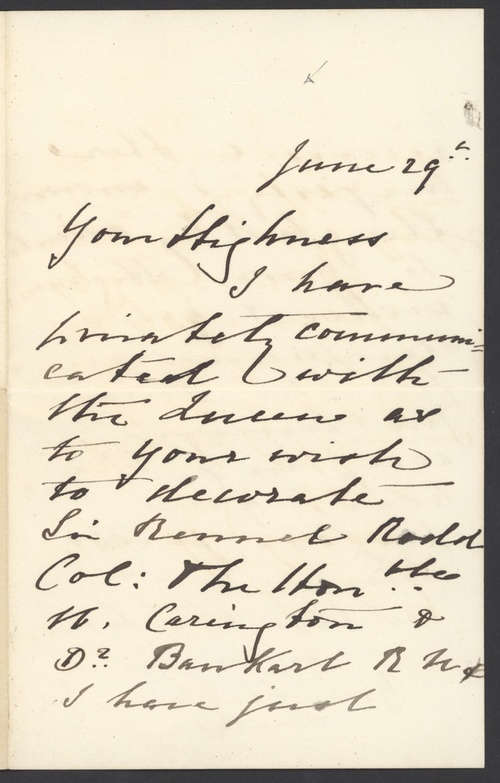 June 29th
Your Highness
I have
privately communi=
cated with
the Queen as
to your wish
to decorate
Sir Rennel Rodd
Col: The Honble
W. Carington &
Dr Bankart R N.
I have just